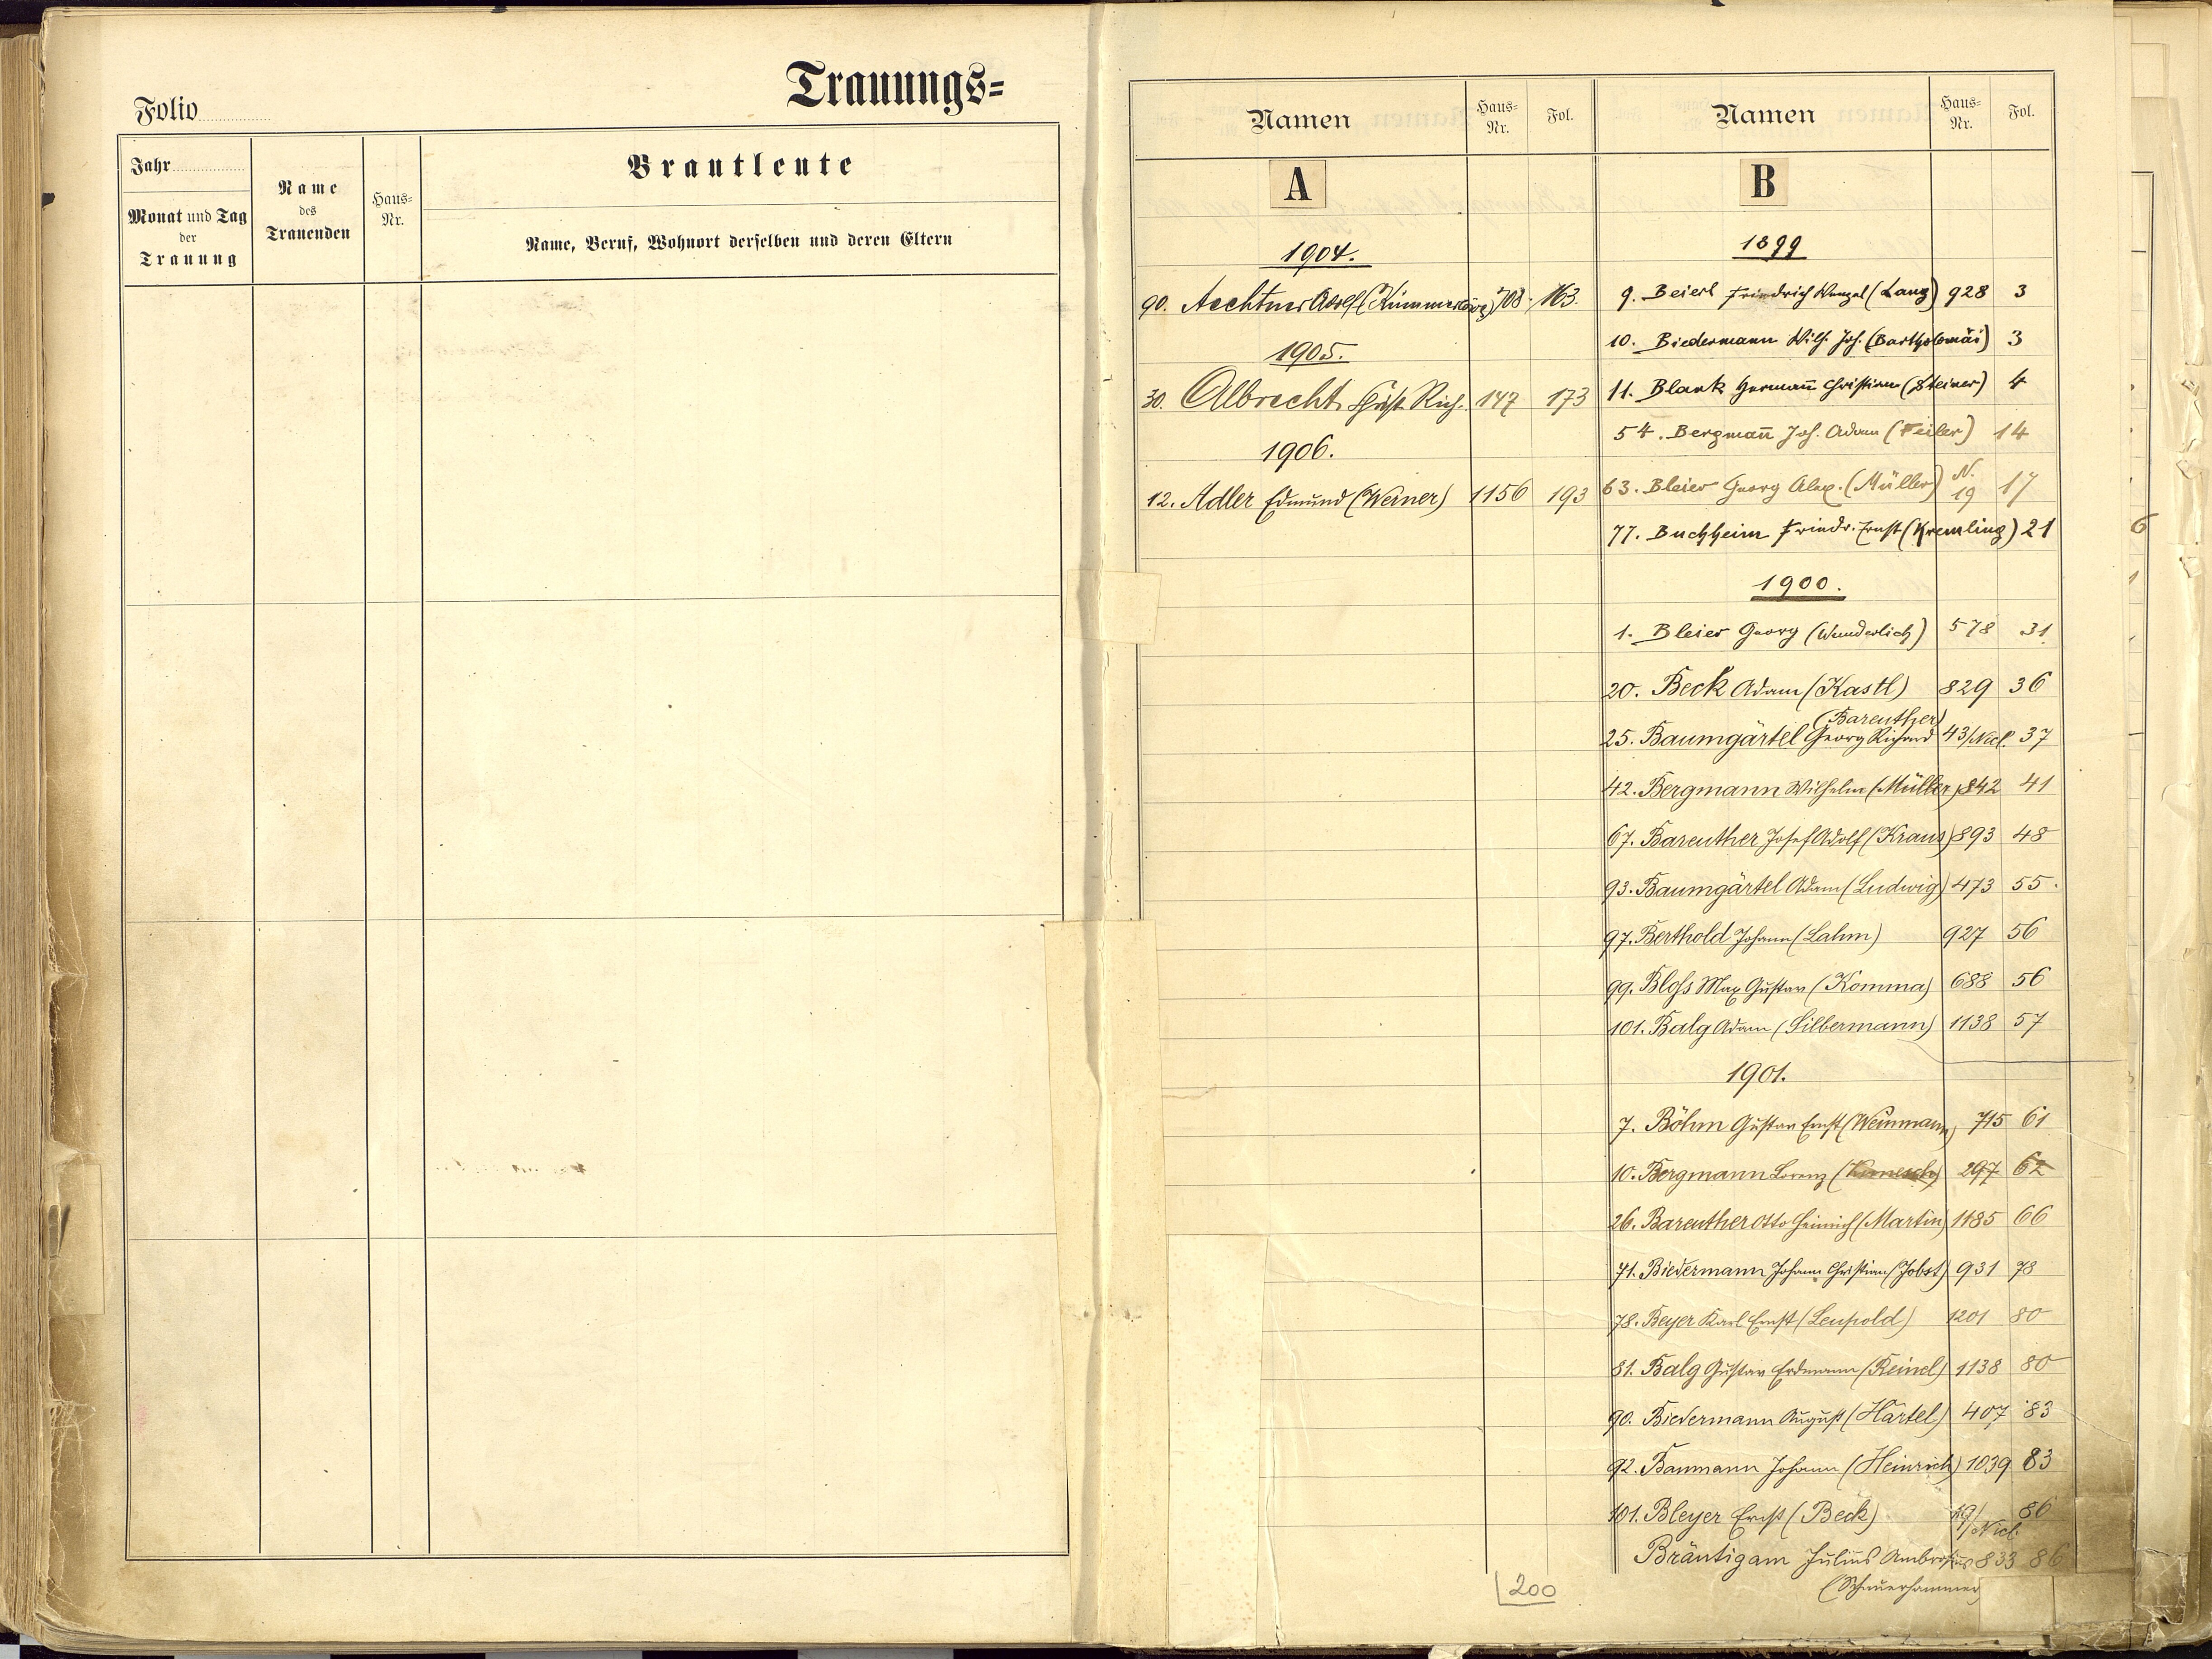 Trauungs=
Folio
Jahr
Monat und Tag
der
Trauung
Name
des
Trauenden
Haus-
Nr.
Brautleute
Name, Beruf, Wohnort derselben und deren Eltern
Namen Haus-Nr. Fol.
A
1904.
90. Aechtner Adolf 708 163.
1905.
30. Albrecht Rich. 147 173
1906.
12. Adler Edmund (Werner) 1156 193
Namen Haus-Nr. Fol.
B
1899
9. Beierl Friedrich Wenzel (Lang) 928 3
10. Biedermann Wilh. Joh. (Bartholomäi) 3
11. Blank Hermañ Christian (Steiner) 4
54. Bergmañ Joh. Adam (Feiler) 14
63. Bleier Georg Alex. (Müller) N. 19 17
77. Buchheim Friedr. Ernst (Kremling) 21
1900.
1. Bleier Georg (Wunderlich) 578 31
20. Beck Adam (Kastl) 829 36
(Bareuther)
25. Baumgärtel Georg Richard 43/Nicl. 37
42. Bergmann Wilhelm (Müller) 842 41
67. Bareuther Josef Adolf (Kraus) 893 48
93. Baumgärtel Adam (Ludwig) 473 55.
97. Berthold Johann (Lahm) 927 56
99. Bloss Max Gustav (Komma) 688 56
101. Balg Adam (Silbermann) 1138 57
1901.
7. Böhm Gustav Ernst (Weinmann) 715 61
10. Bergmann Lorenz 297 62
26. Bareuther Otto Heinrich (Martin) 1185 66
71. Biedermann Johann Christian (Jobst) 931 78
78. Beyer Karl Ernst (Leupold) 1201 80
81. Balg Gustav Erdmann (Reinel) 1138 80
90. Biedermann August (Härtel) 407 83
92. Baumann Johann (Heinrich) 1039 83
101. Bleyer Ernst (Beck) 19/Nicl. 86
Bräutigam Julius Ambrosius 833 86
(Scheuerhammer)
200